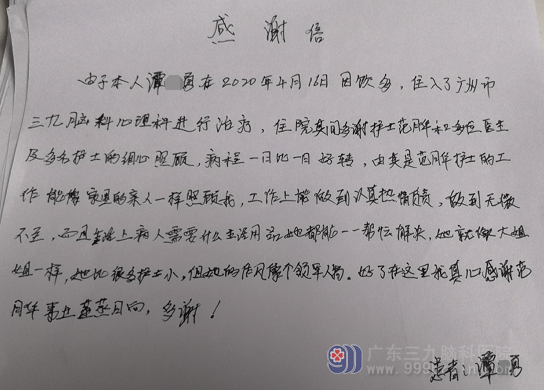 感谢信
由于本人谭 勇在2020年4月16日因饮多,住入了广州市
三九脑科心理科进行治疗,住院其间多谢护士范月华和各位医生
及多名护士的细心照顾,病程一日比一日好转,由其是范月华护士的工
作能像家里的亲人一样照顾我,工作上能做到认真热情负责,做到无微
不至,还且生活上病人需要什么生活用品她都能一一帮忙解决,她就像大姐
姐一样,她比很多护士小,但她的作风像个领军人物。好了在这里我真心感谢范
月华事业蒸蒸日向,多谢!
患者:谭 勇
广东三九脑科医院
www.999